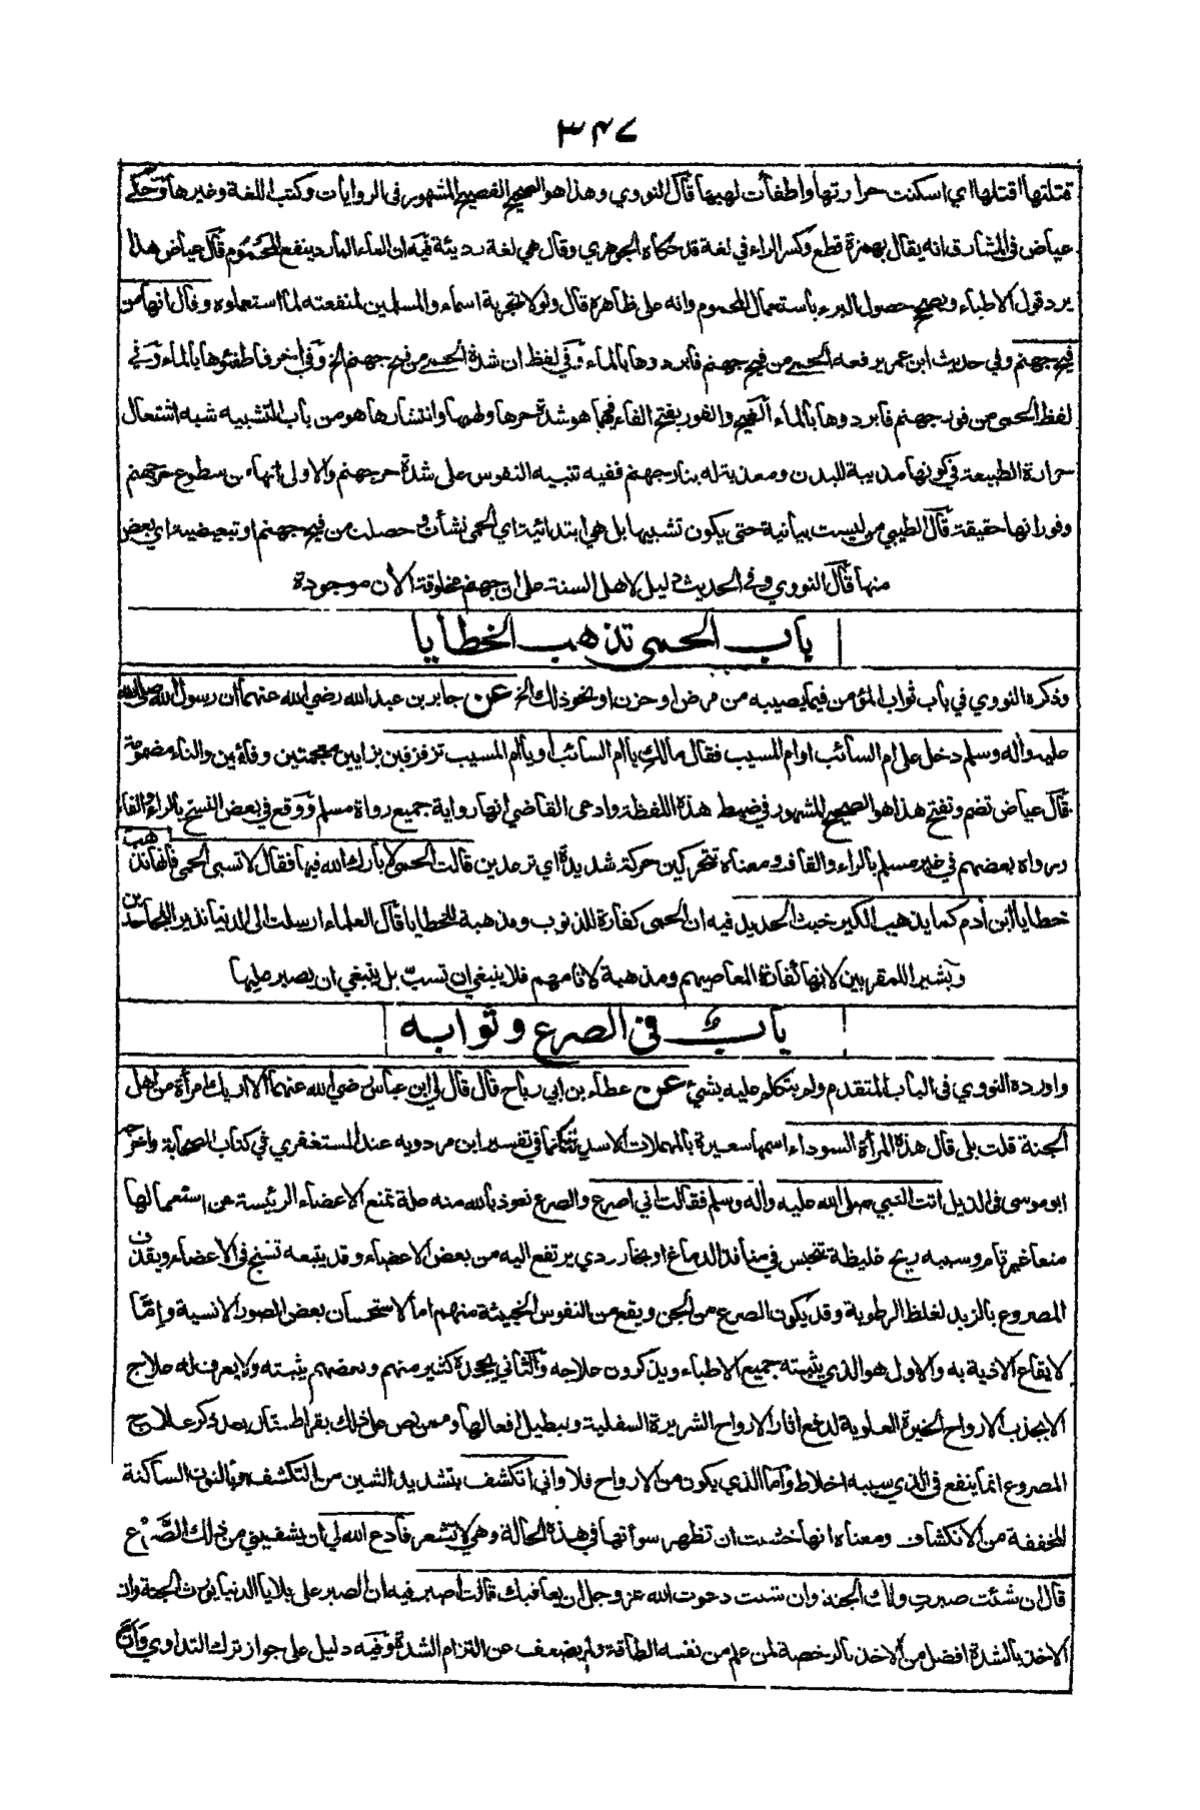 ٣٤٧
قتلتها اقتلها اي اسكنت حرارتها واطفأت لهبها قال النووي وهذا هو الصحيح الفصيح المشهور في الروايات وكتب اللغة وغيرها وحكى
عياض في المشارق انه يقال بهمزة قطع وكسر الراء في لغة قد حكاه الجوهري وقال هي لغة رديئة فيه ان الماء البارد ينفع المحموم قال عياض هذا
يرد قول الاطباء ويصحح حصول البرء باستعمال المحموم وانه على ظاهره قال ولولا تجربة اسماء والمسلمين لمنفعته لما استعملوه وقال انها من
فيح جهنم وفي حديث ابن عمر يرفعه الحمى من فيح جهنم فابردوها بالماء وفي لفظ ان شدة الحمى من فيح جهنم الخ وفي اخر فاطفئوها بالماء وفي
لفظ الحمى من فور جهنم فابردوها بالماء الفيح والفور بفتح الفاء فيهما هو شدة حرها ولهبها وانتشارها هو من باب التشبيه شبه اشتعال
حرارة الطبيعة في كونها مذيبة للبدن ومعذبة له بنار جهنم ففيه تنبيه النفوس على شدة حر جهنم والاولى انها من سطوع حر جهنم
وفورانها حقيقة قال الطيبي من ليست بيانية حتى يكون تشبيها بل هي ابتدائية اي الحمى نشأت وحصلت من فيح جهنم او تبعيضية اي بعض
منها قال النووي وفي الحديث دليل لاهل السنة على ان جهنم مخلوقة الآن موجودة
باب الحمى تذهب الخطايا
وذكره النووي في باب ثواب المؤمن فيما يصيبه من مرض او حزن او نحو ذلك الخ عن جابر بن عبد الله رضي الله عنهما ان رسول الله صلى الله
عليه وآله وسلم دخل على ام السائب او ام المسيب فقال مالك يا ام السائب او يا ام المسيب تزفزفين بزايين معجمتين وفاءين والتاء مضمومة
قال عياض تضم وتفتح هذا هو الصحيح المشهور في ضبط هذه اللفظة وادعى القاضي انها رواية جميع رواة مسلم ووقع في بعض النسخ بالراء والفاء
ورواه بعضهم في غير مسلم بالراء والقاف ومعناه تتحركين حركة شديدة اي ترعدين قالت الحمى لا بارك الله فيها فقال لا تسبي الحمى فانها تذهب
خطايا ابن آدم كما يذهب الكير خبث الحديد فيه ان الحمى كفارة للذنوب ومذهبة للخطايا قال العلماء ارسلت الى الدنيا نذير للجاحدين
وبشير اللمقربين لانها كفارة لمعاصيهم ومذهبة لآثامهم فلا ينبغي ان تسب بل ينبغي ان يصبر عليها
باب في الصرع وثوابه
واورده النووي في الباب المتقدم ولم يتكلم عليه بشيء عن عطاء بن ابي رباح قال قال لي ابن عباس رضي الله عنهما الا اريك امرأة من اهل
الجنة قلت بلى قال هذه المرأة السوداء اسمها سعيرة بالمهملات الاسدية كما في تفسير ابن مردويه عند المستغفري في كتاب الصحابة واخرجه
ابو موسى في الذيل اتت النبي صلى الله عليه وآله وسلم فقالت اني اصرع والصرع نعوذ بالله منه علة تمنع الاعضاء الرئيسة عن استعمالها
منعا غير تام وسببه ريح غليظة تنحبس في منافذ الدماغ او بخار ردي يرتفع اليه من بعض الاعضاء وقد يتبعه تشنج في الاعضاء ويقذف
المصروع بالزبد لغلظ الرطوبة وقد يكون الصرع من الجن ويقع من النفوس الخبيثة منهم اما لاستحسان بعض الصور الانسية وإمّا
لايقاع الاذية به والاول هو الذي يثبته جميع الاطباء ويذكرون علاجه والثاني يجحده كثير منهم وبعضهم يثبته ولا يعرف له علاج
الا بجذب الارواح الخيرة العلوية لدفع آثار الارواح الشريرة السفلية وتبطيل افعالها وممن نص على ذلك بقراط فقال بعد ذكر علاج
المصروع انما ينفع في الذي سببه اخلاط واما الذي يكون من الارواح فلا واني اتكشف بتشديد الشين من التكشف وبالنون الساكنة
المخففة من الانكشاف ومعناه انها خشيت ان تظهر سوأتها في هذه الحالة وهي لا تشعر فادع الله لي ان يشفيني من ذلك الصَّرْع
قال ان شئت صبرت ولك الجنة وان شئت دعوت الله عز وجل ان يعافيك قالت اصبر فيه ان الصبر على بلايا الدنيا يورث الجنة وان
الاخذ بالشدة افضل من الاخذ بالرخصة لمن علم من نفسه الطاقة ولم يضعف عن التزام الشدة وفيه دليل على جواز ترك التداوي وأن